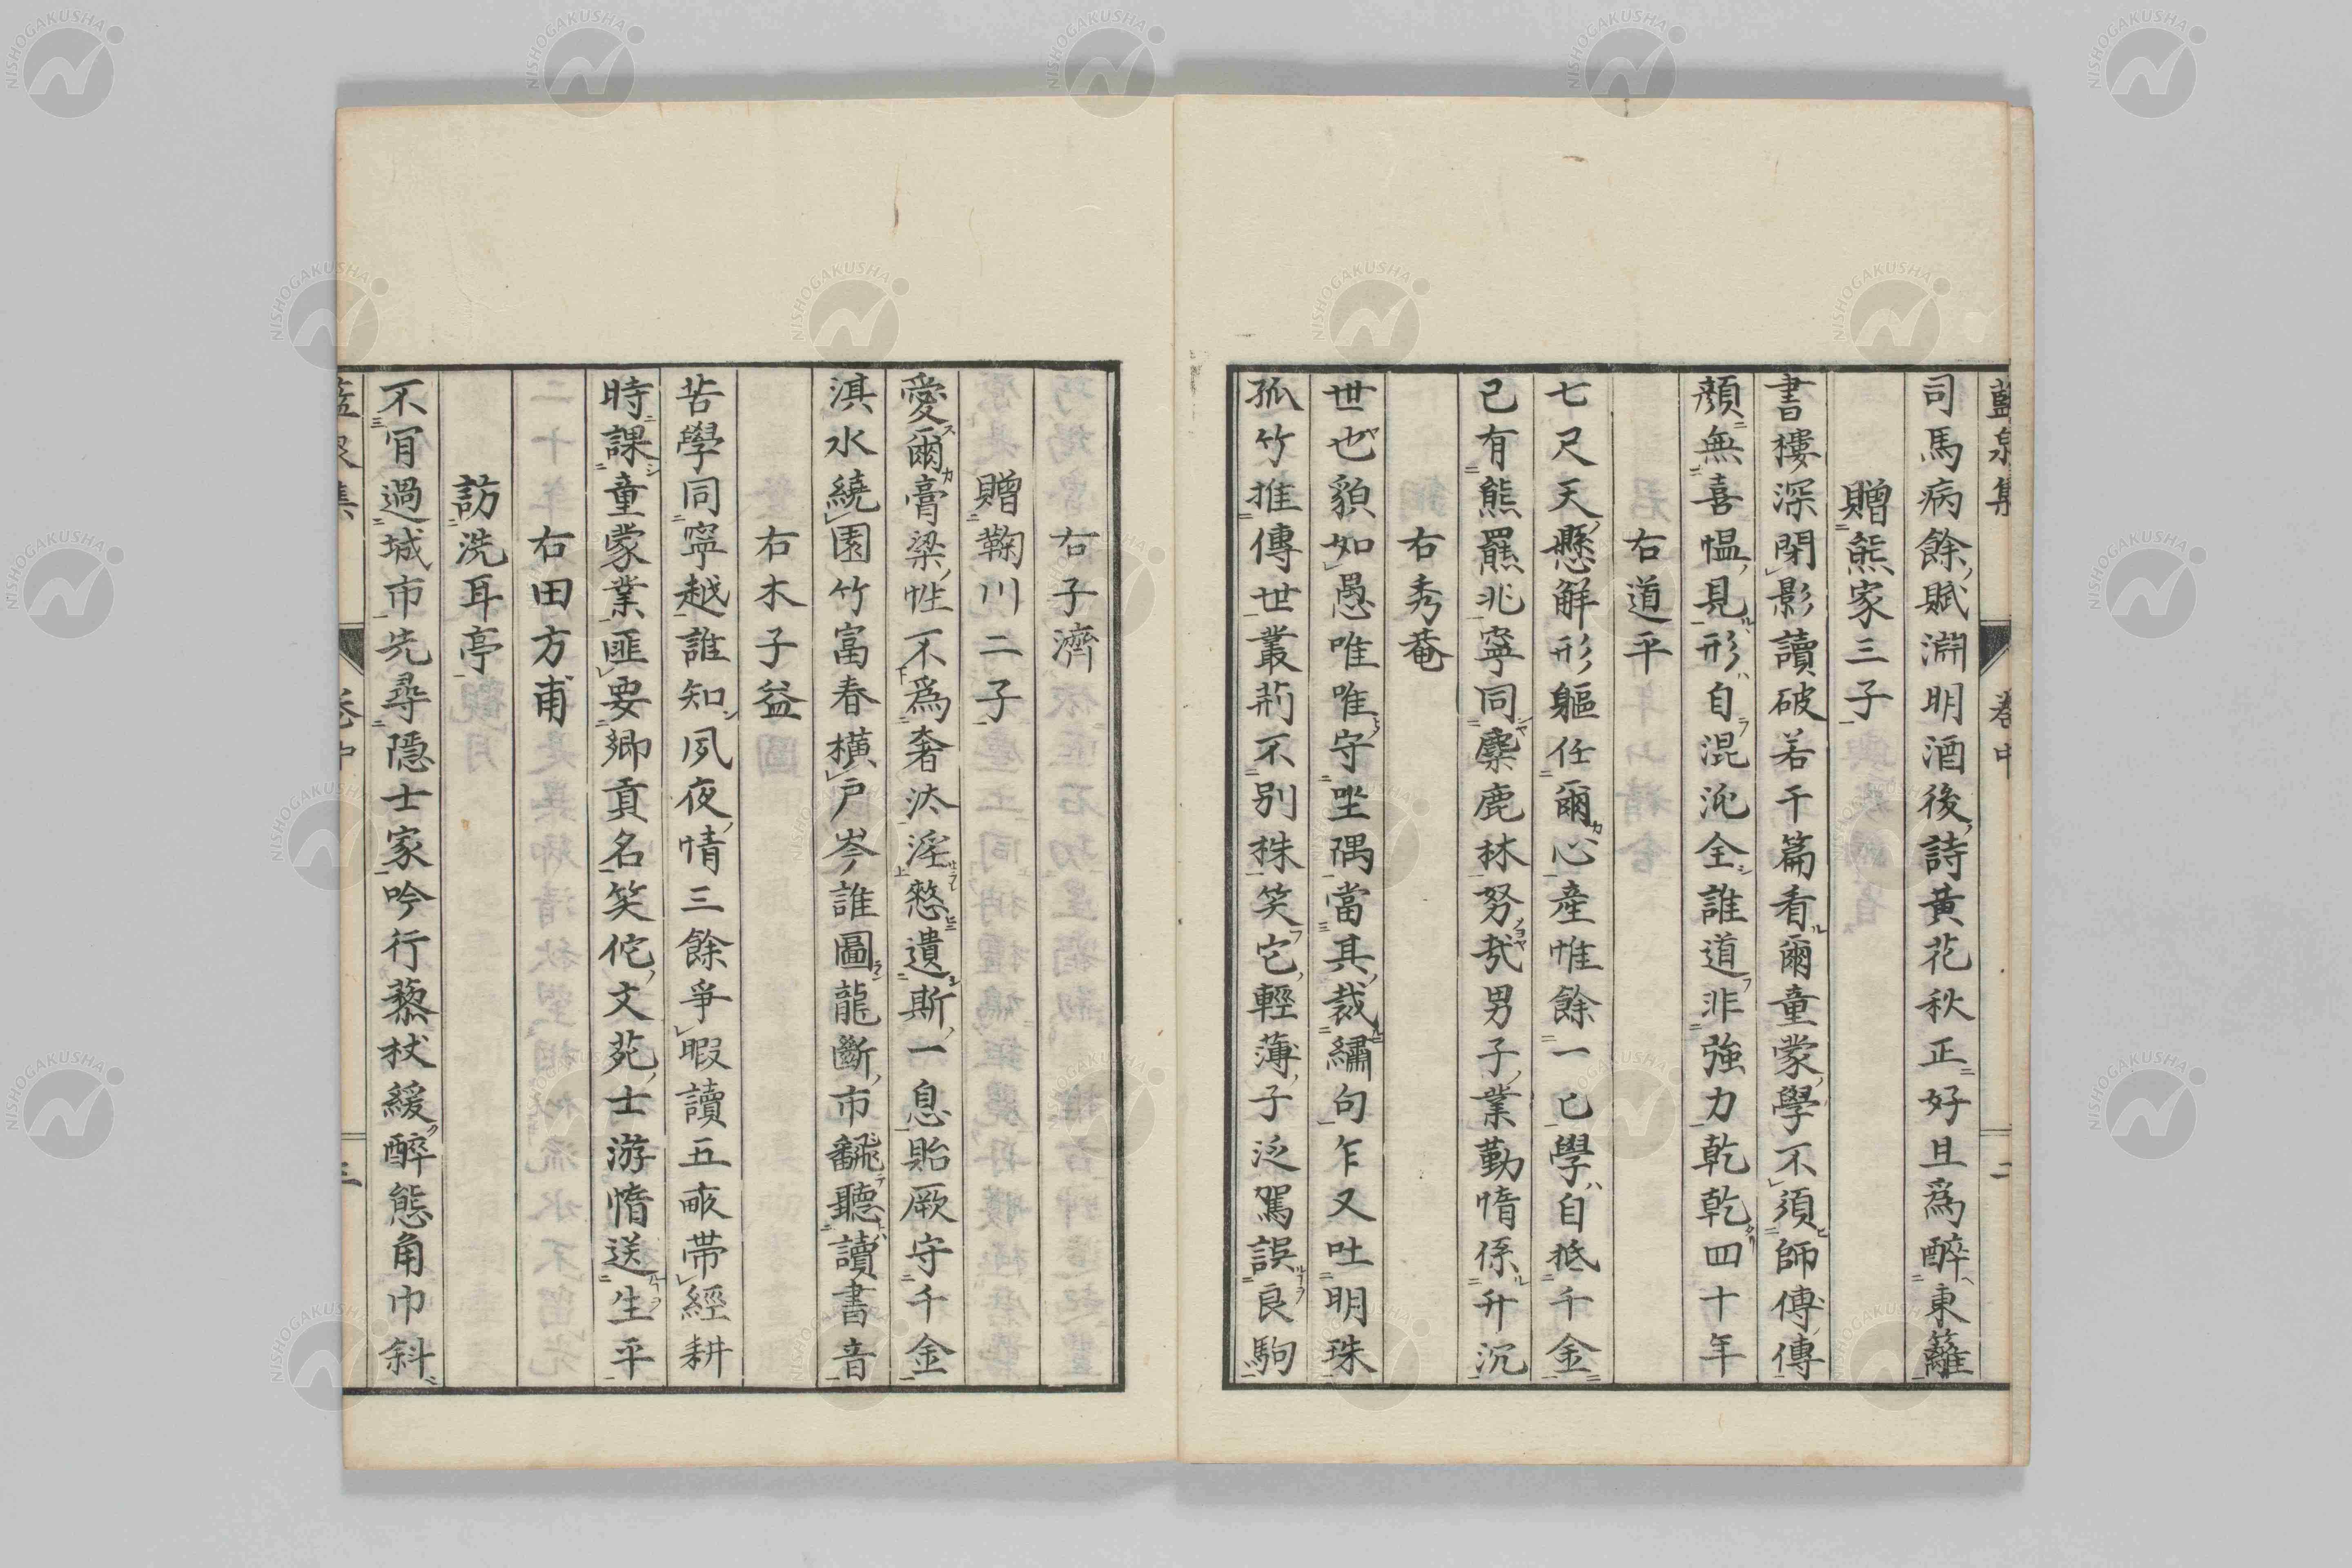 藍泉集 卷中 二
司馬病餘賦淵明酒後詩黃花秋正好且爲醉東籬
贈熊家三子
書樓深閉影讀破若干篇看爾童蒙學不須師傅傳
顏無喜愠見形自混沌全誰道非強力乾乾四十年
右道平
七尺天懸解形軀任爾心產惟餘一已學自抵千金
已有熊羆兆寧同麋鹿林努哉男子業勤惰係升沉
右秀菴
世也貌如愚唯唯守坐隅當其裁繡句乍又吐明珠
孤竹推傳世叢荊不別株笑它輕薄子泛駕誤良駒
右子濟
贈鞠川二子
愛爾膏粱性不爲奢汰淫慭遺斯一息貽厥守千金
淇水繞園竹富春橫戶岑誰圖龍斷市飜聽讀書音
右木子益
苦學同寧越誰知夙夜情三餘爭暇讀五畝帶經耕
時課童蒙業匪要鄉貢名笑佗文苑士游惰送生平
右田方甫
訪洗耳亭
不肎過城市先尋隱士家吟行藜杖緩醉態角巾斜
藍泉集 卷中 三
NISHOGAKUSHA